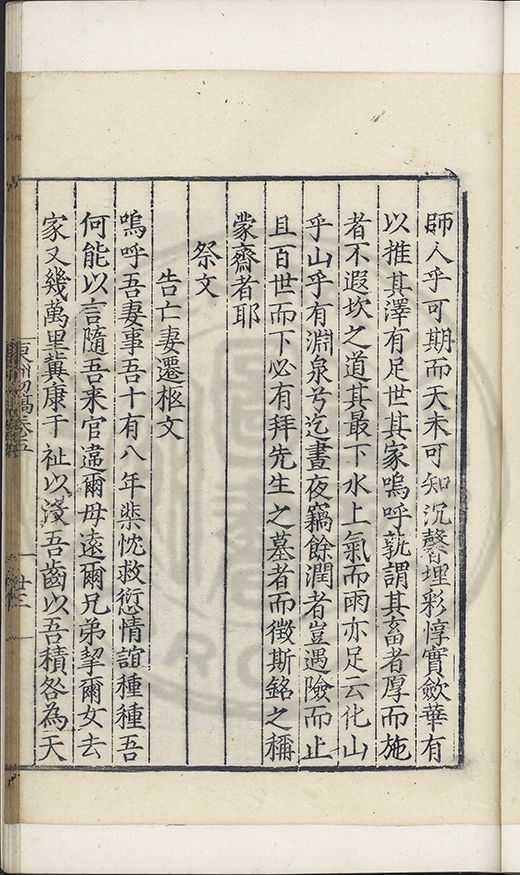 師人乎可期而天未可知沉馨埋彩惇實歛華有
以推其澤有足世其家嗚呼孰謂其畜者厚而施
者不遐坎之道其最下水上氣而雨亦足云化山
乎山乎有淵泉兮迄晝夜竊餘潤者豈遇險而止
且百世而下必有拜先生之墓者而徵斯銘之稱
蒙齋者耶
祭文
告亡妻遷柩文
嗚呼吾妻事吾十有八年棐忱救愆情誼種種吾
何能以言隨吾来官逺爾母遠爾兄弟挈爾女去
家又幾萬里冀康于祉以没吾齒以吾積咎為天
東洲初稿卷五
廿三